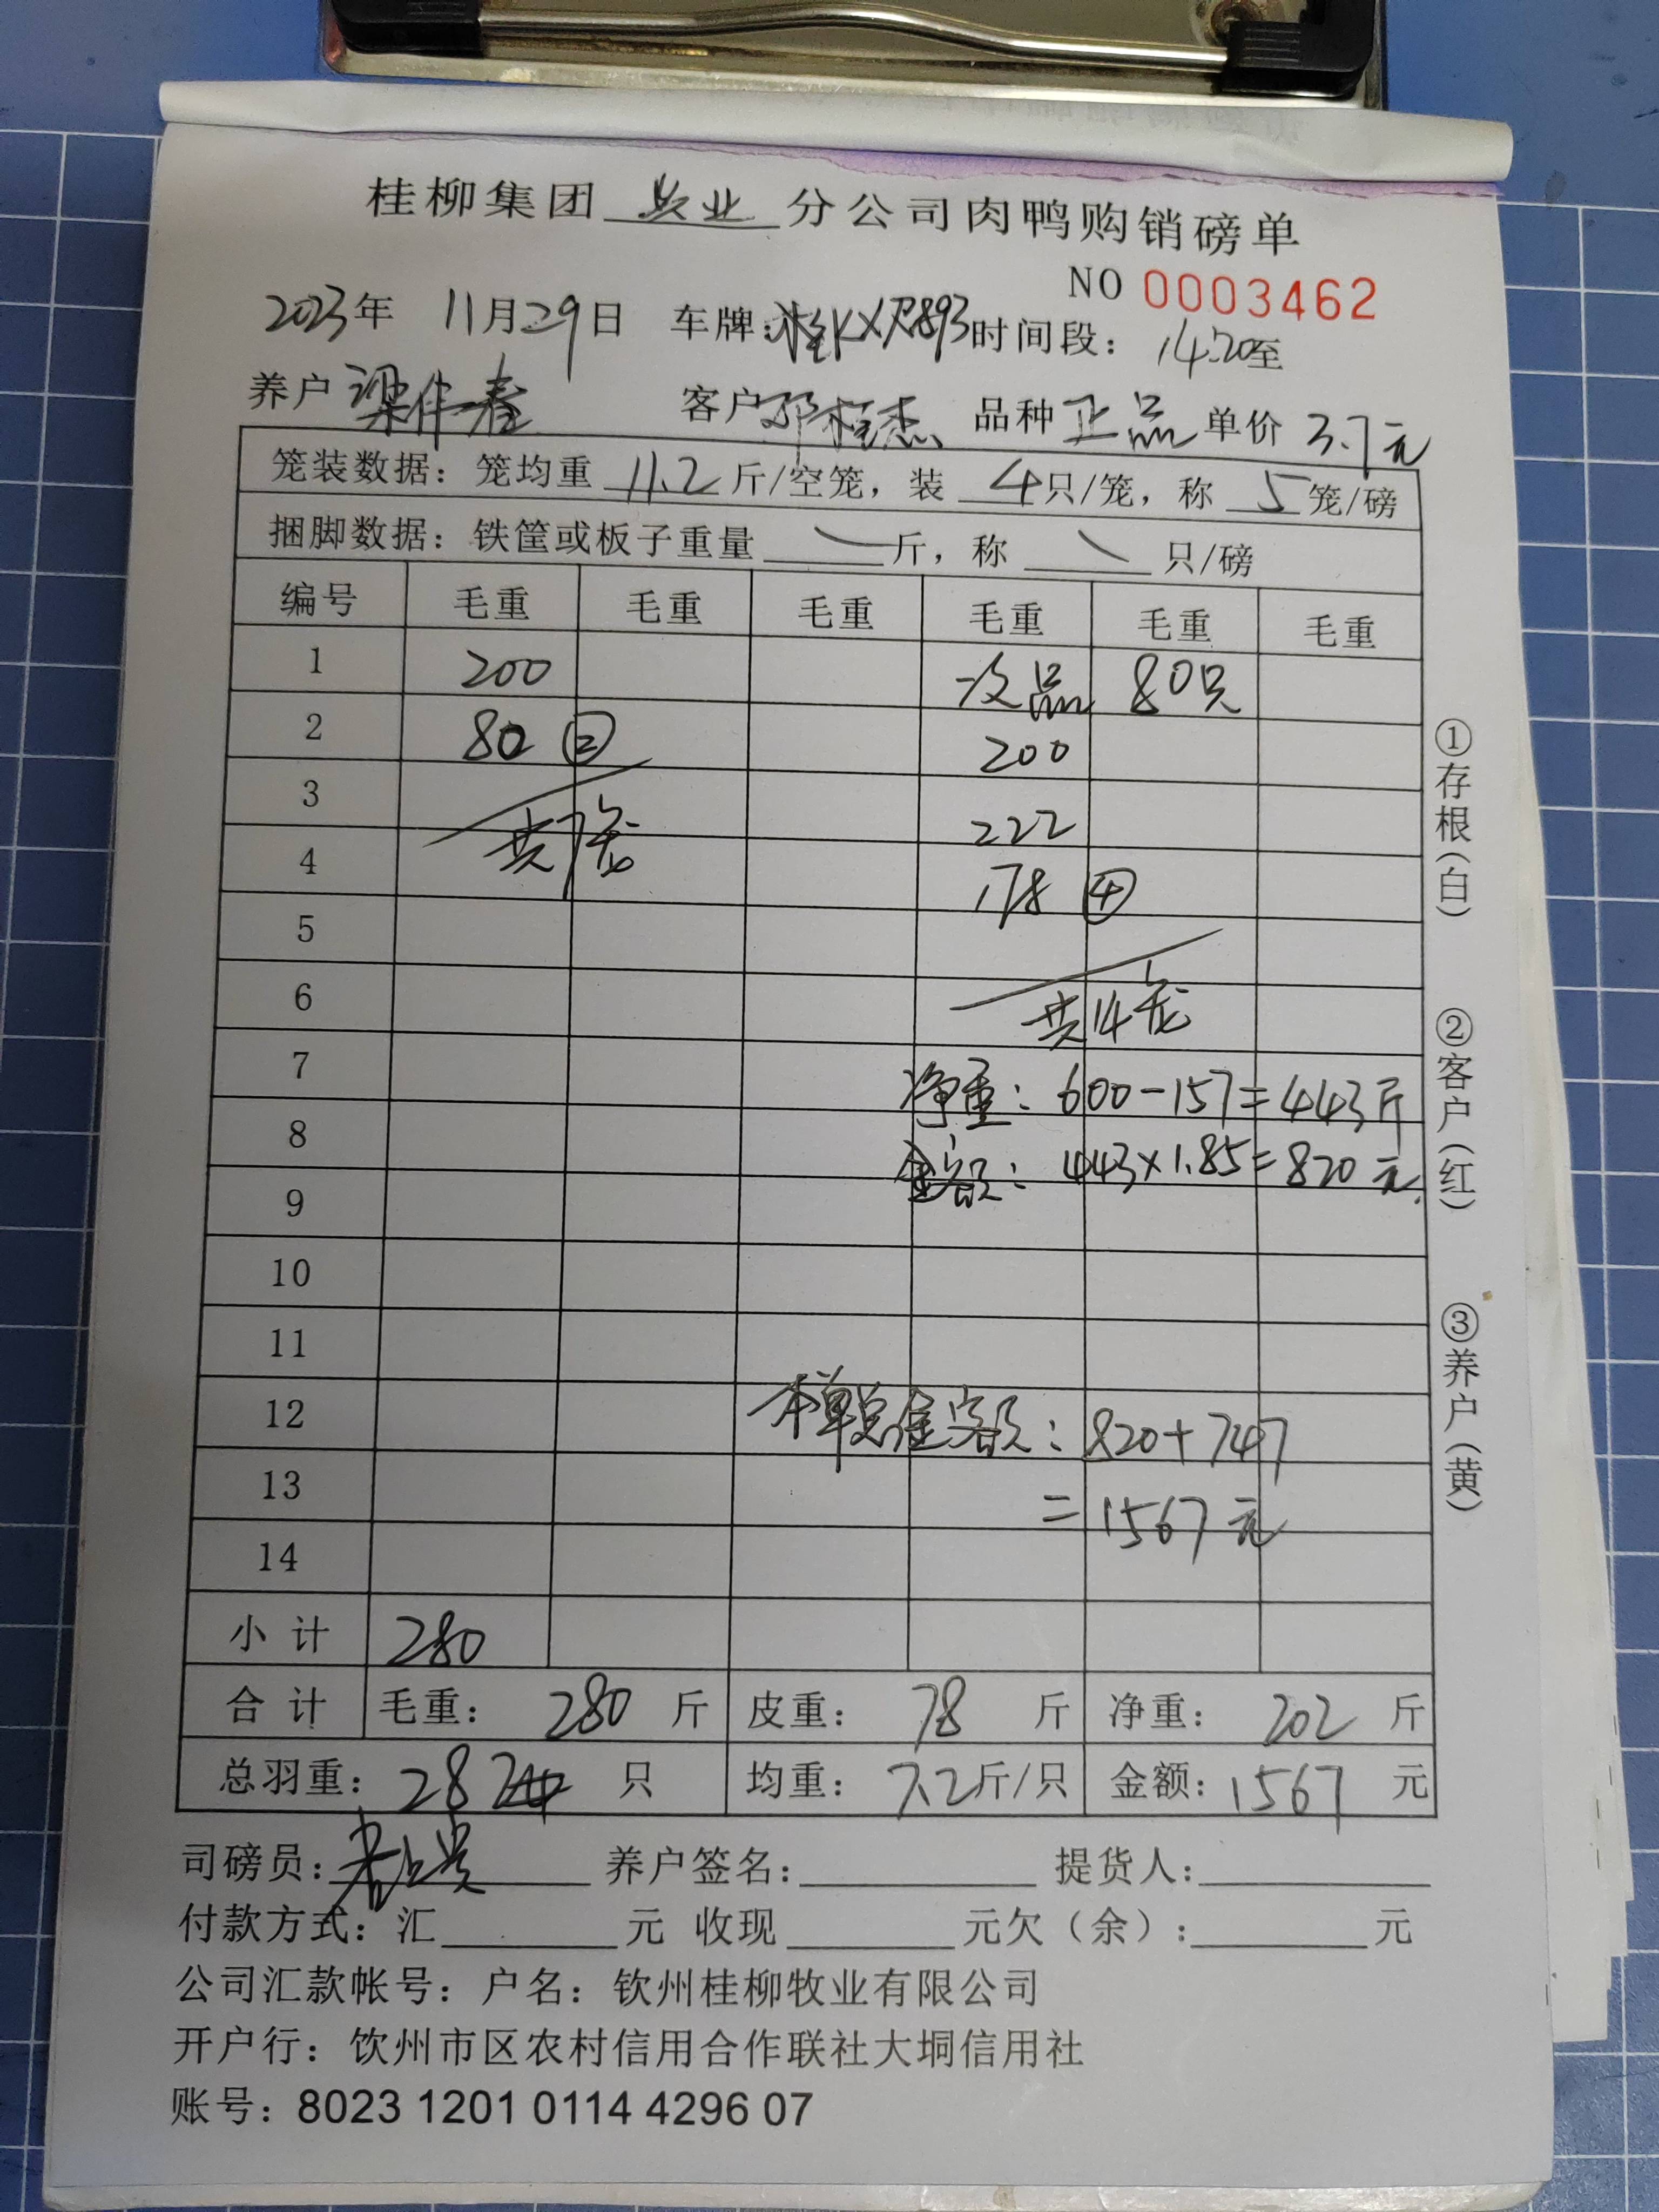 桂柳集团 兴业 分公司肉鸭购销磅单
NO 0003462
2023年 11月29日 车牌:桂KXR893 时间段: 14:20至
养户 梁伟春 客户 邓桂杰 品种 正品 单价 3.7元
笼装数据: 笼均重 11.2 斤/空笼, 装 4只/笼, 称 5 笼/磅
捆脚数据: 铁筐或板子重量 斤, 称 只/磅
编号 毛重 毛重 毛重 毛重 毛重 毛重
1 200 次品 80只
2 80 ② 200
3 222
4 共7笼 178 ④
5
6 共14笼
7 净重: 600-157=443斤
8 金额: 443×1.85=820元
9
10
11
12 本单总金额: 820+747
13 =1567元
14
小计 280
合计 毛重: 280 斤 皮重: 78 斤 净重: 202 斤
总羽重: 28 只 均重: 7.2斤/只 金额: 1567 元
司磅员: 养户签名: 提货人:
付款方式: 汇 元 收现 元欠(余): 元
公司汇款帐号: 户名: 钦州桂柳牧业有限公司
开户行: 钦州市区农村信用合作联社大垌信用社
账号: 8023 1201 0114 4296 07
①存根(白)
②客户(红)
③养户(黄)